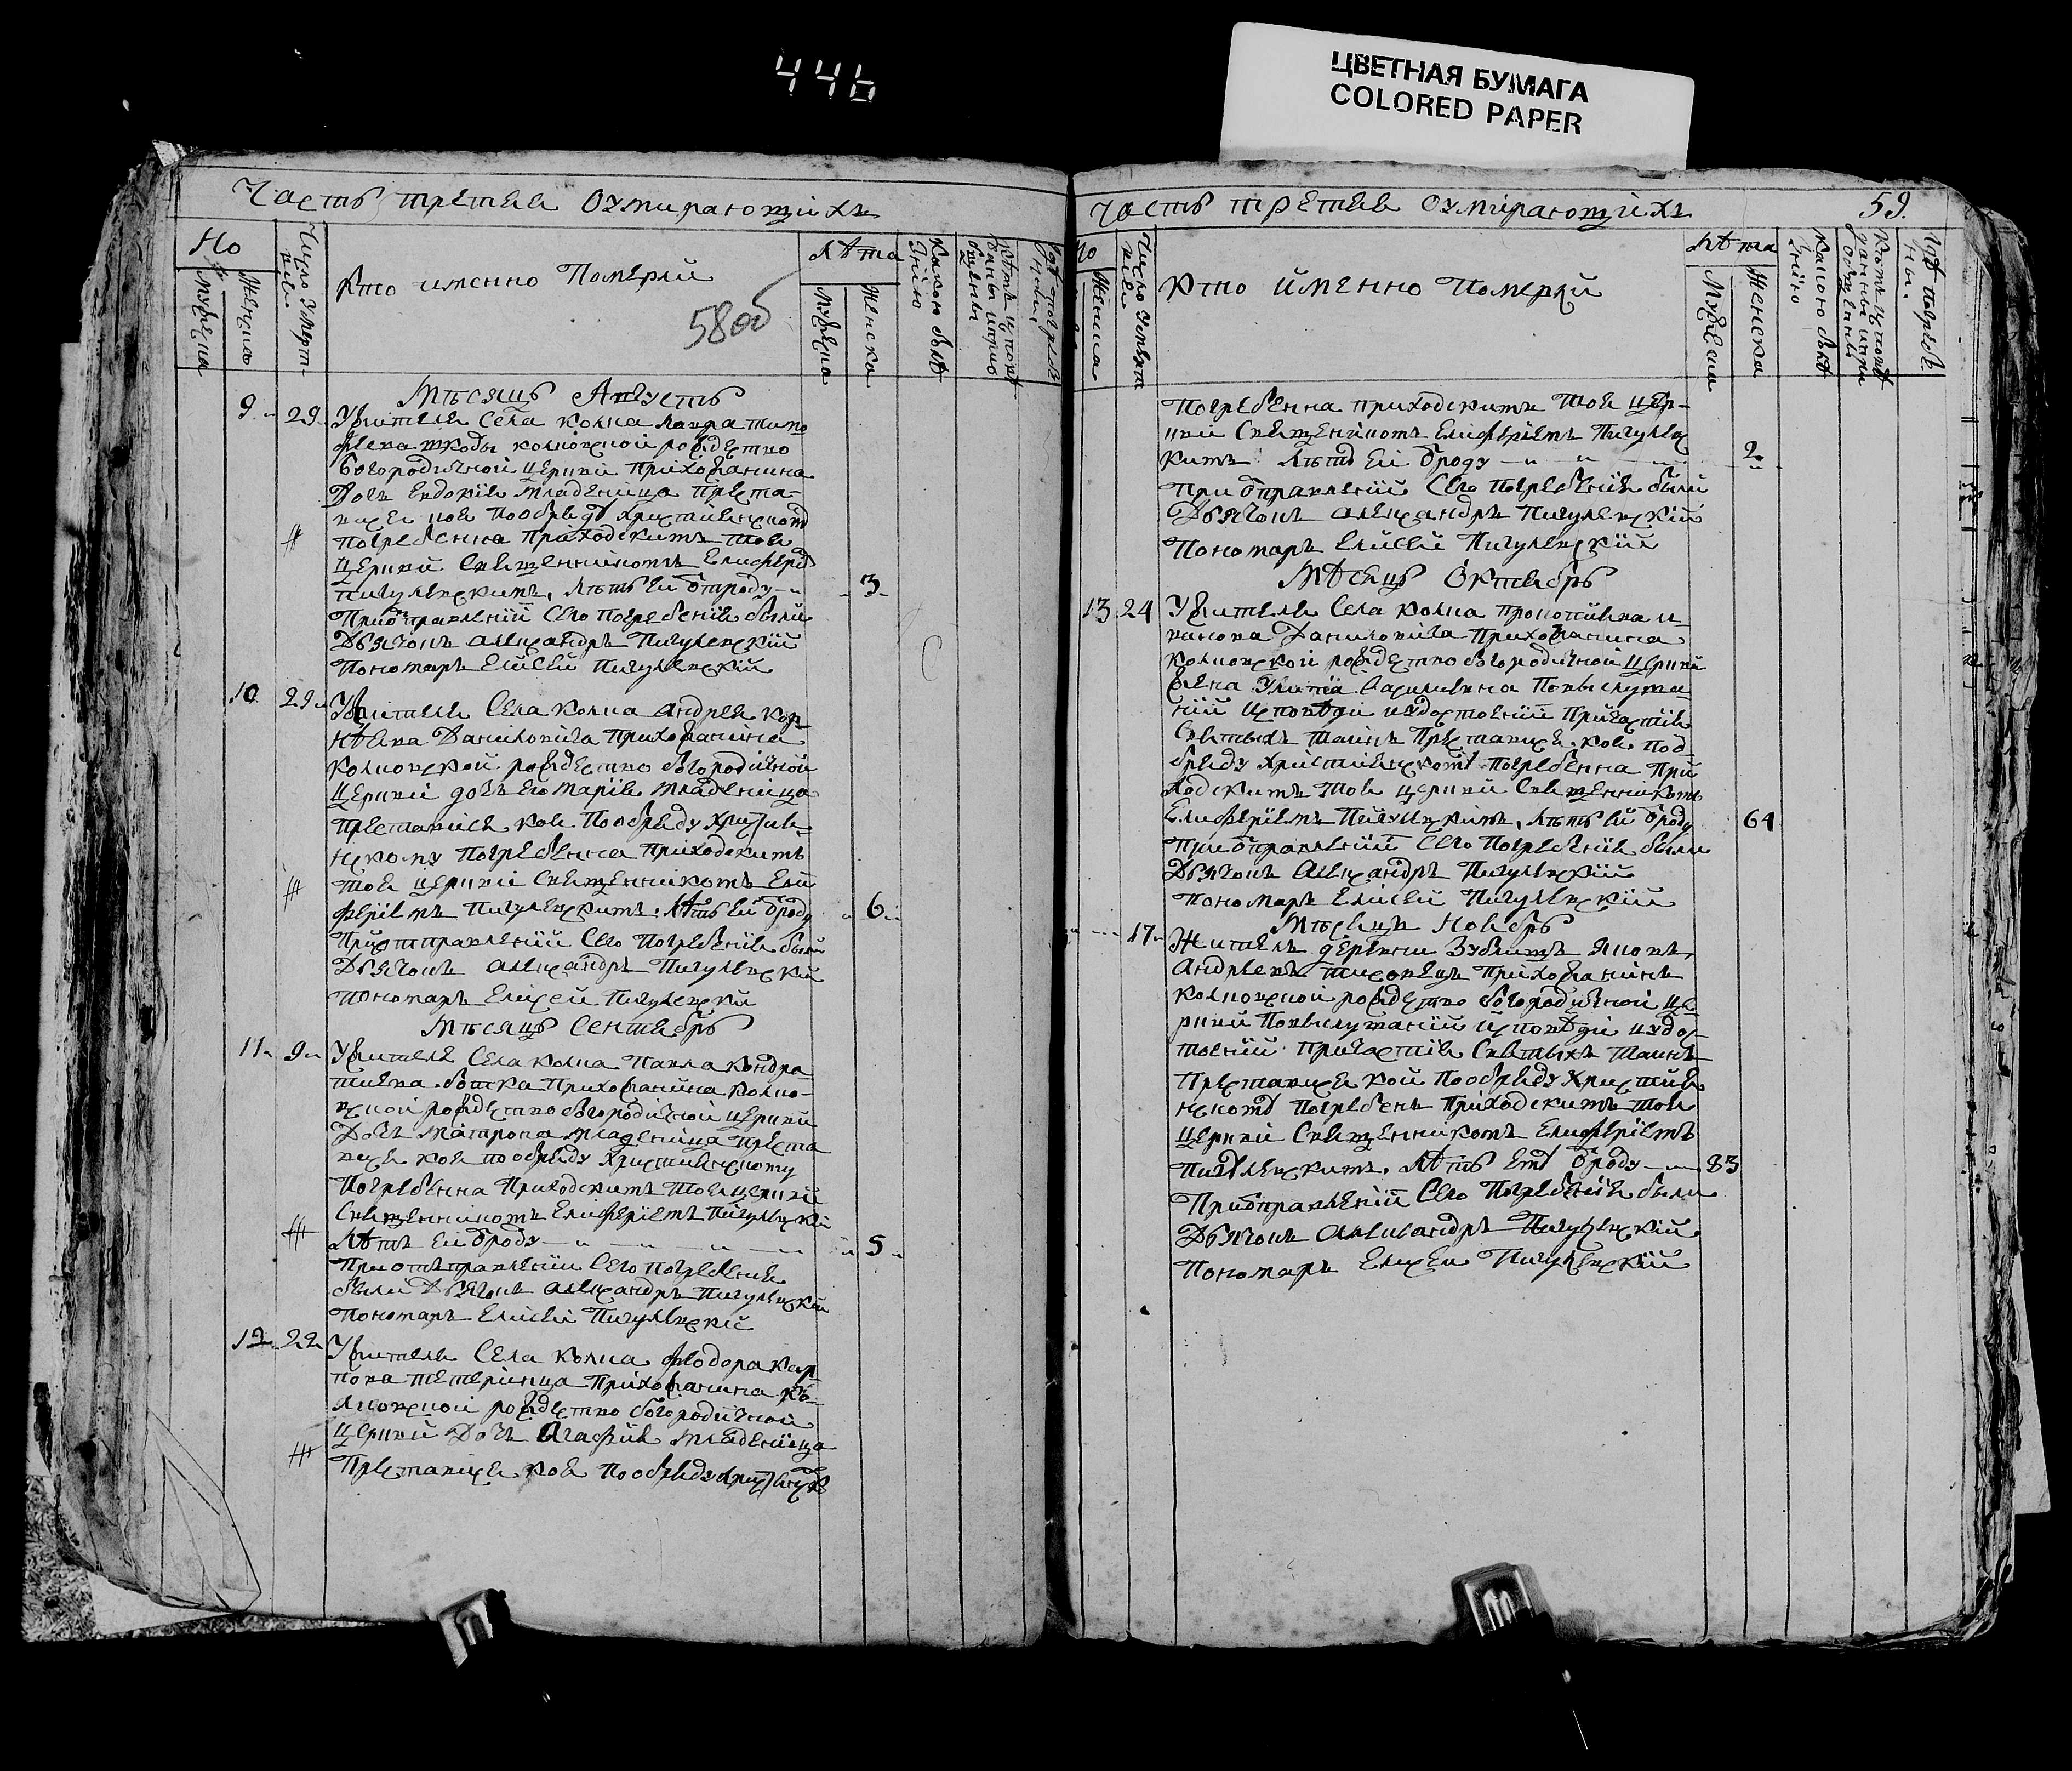 446
ЦВЕТНАЯ БУМАГА
COLORED PAPER
Часть третая Оумирающихъ
Но
Мужеска
Женска
Число умерт
вiи
Кто именно Померли
58об
лѣта
Мужеска
Женска
Какою болѣ
знiю
Мѣсяцъ Августъ
9 29 Жителя Села Колпа Лавра Тимо
колповской рождество
Богородичной церкви Прихожанина
Дочь Евдокiя младеница преста
вися коя Пообряду христиенскому
Погребенна Приходскимъ тоя
Церкви Священникомъ Елиферiе
Пигулевскимъ, лѣтъ ей отроду 3
Приотправленiи Сего Погребенiя были
Дьячокъ Александръ Пигулевскiй
Пономарь Елисей Пигулевскiй
10 29 Жителя Села Колпа Андрея Кор
нѣева Даниловича Прихожанина
Колповской рождество богородичной
Церкви дочь его Марiя младеница
Преставися коя Пообряду христия
нскому Погребенна Приходскимъ
тоя церкви Священникомъ Ели
ферiемъ Пигулевскимъ, лѣтъ ей ѿроду 6
Приотправленiи Сего Погребенiя были
Дьячокъ Александръ Пигулевскiй
Пономарь Елисей Пигулевскiй
Мѣсяцъ Сентябрь
11 9 Жителя Села Колпа Павла Кондра
тиева Прихожанина Колпо
вской рождество богородичной церкви
Дочь Матрона младеница преста
вися коя пообряду христиенскому
Погребенна Приходскимъ тоя церкви
Священникомъ Елиферiемъ Пигулевскi
лѣтъ ей ѿроду 5
Приотправленiи Сего погребения
были Дьячокъ Александръ Пигулевскiй
Пономарь Елисей Пигулевскiй
12 22 Жителя Села Колпа Феодора Кар
пова Тетеринца Прихожанина Ко
лповской рождество богородичной
Церкви Дочь Агафия младеница
Преставися коя Пообряду
Часть третая Оумирающихъ 59
Но
Женска
Число Умерт
вiи
Кто именно Померли
лѣта
Мужеска
Женска
Какою болѣ
знiю
Гдѣ погребе
ны
Погребенна приходскимъ тоя цер
кви Священникомъ Елиферiемъ Пигулев
скимъ лѣтъ ей ѿроду 2
При ѿправленiи Сего Погребенiя были
Дьячокъ Александръ Пигулевскiй
Пономарь Елисей Пигулевскiй
Мѣсяцъ Октябрь
13 24 Жителя Села Колпа Прокопиева и
ванова Даниловича Прихожанина
Колповской рождество богородичной Церкви
жена Улитiа Василиевна Повыслуша
нiи исповѣди издостоенiи Причастiя
Святыхъ Таинъ Преставися коя Поо
бряду христиенскому погребенна При
ходскимъ тоя церкви Священникомъ
Елиферiемъ Пигулевскимъ, лѣтъ ей ѿроду 64
Приѿправленiи Сего Погребенiя были
Дьячокъ Александръ Пигулевскiй
Пономарь Елисей Пигулевскiй
Мѣсяцъ Ноябрь
17 Житель деревни Зубищъ Яковъ
Андреевъ Прихожанинъ
Колповской рождество богородичной це
ркви Повыслушанiи исповѣди издос
тоенiи причастiя Святыхъ Таинъ
Преставися кой Пообряду христия
нскому Погребенъ Приходскимъ тоя
церкви Священникомъ Елиферiемъ
Пигулевскимъ, лѣтъ ему ѿроду 83
Приѿправленiи Сего Погребенiя были
Дьячокъ Александръ Пигулевскiй
Пономарь Елисей Пигулевскiй